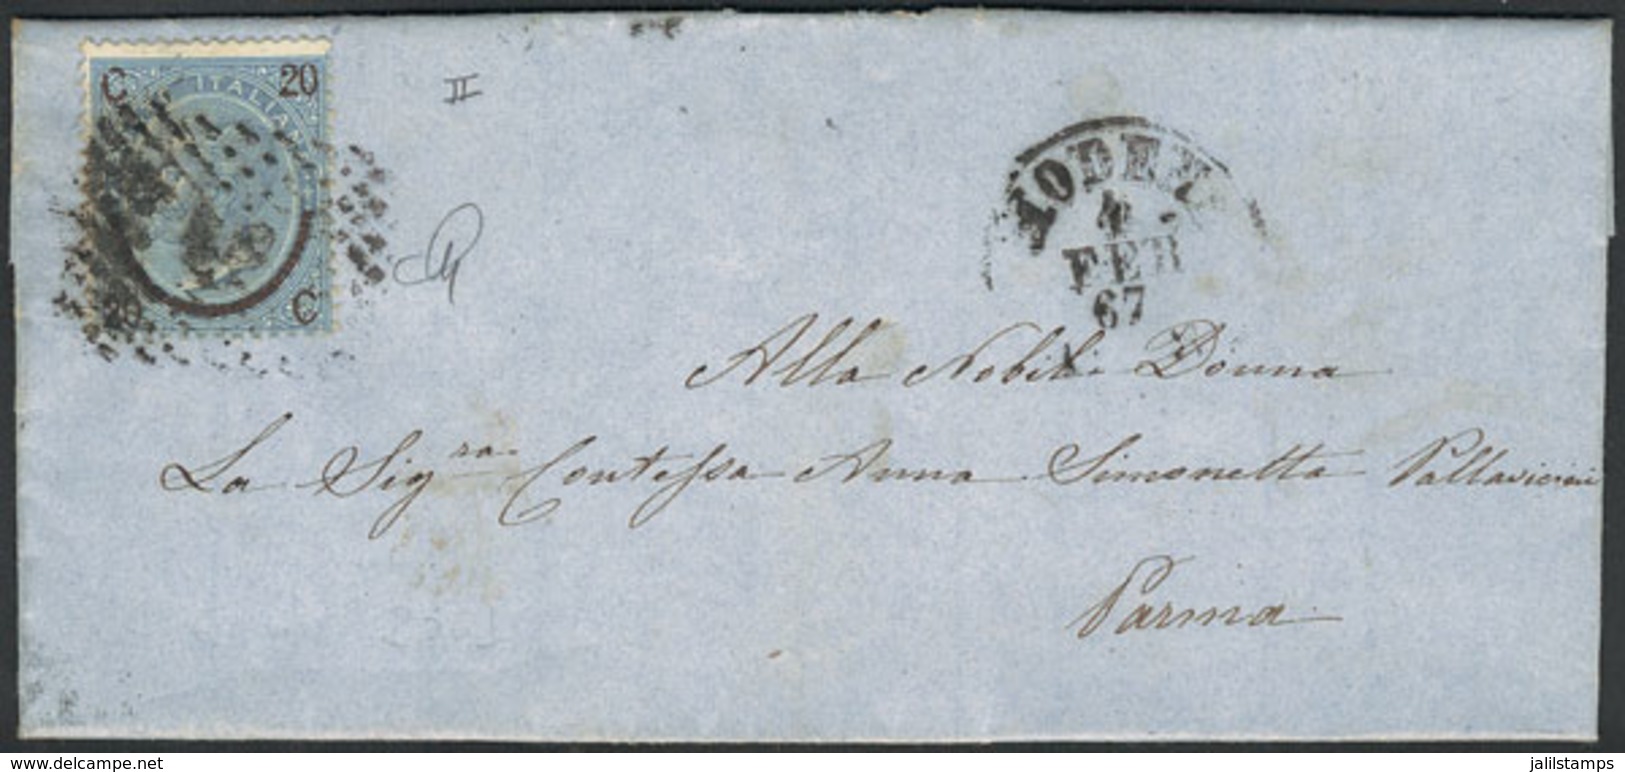 C 20
ITALIAN
20 C
II
MODENA
4
FEB
67
Alla Nobile Donna
La Sig.ra Contessa Anna Simonetta Pallavicini
Parma
www.delcampe.net
jalilstamps